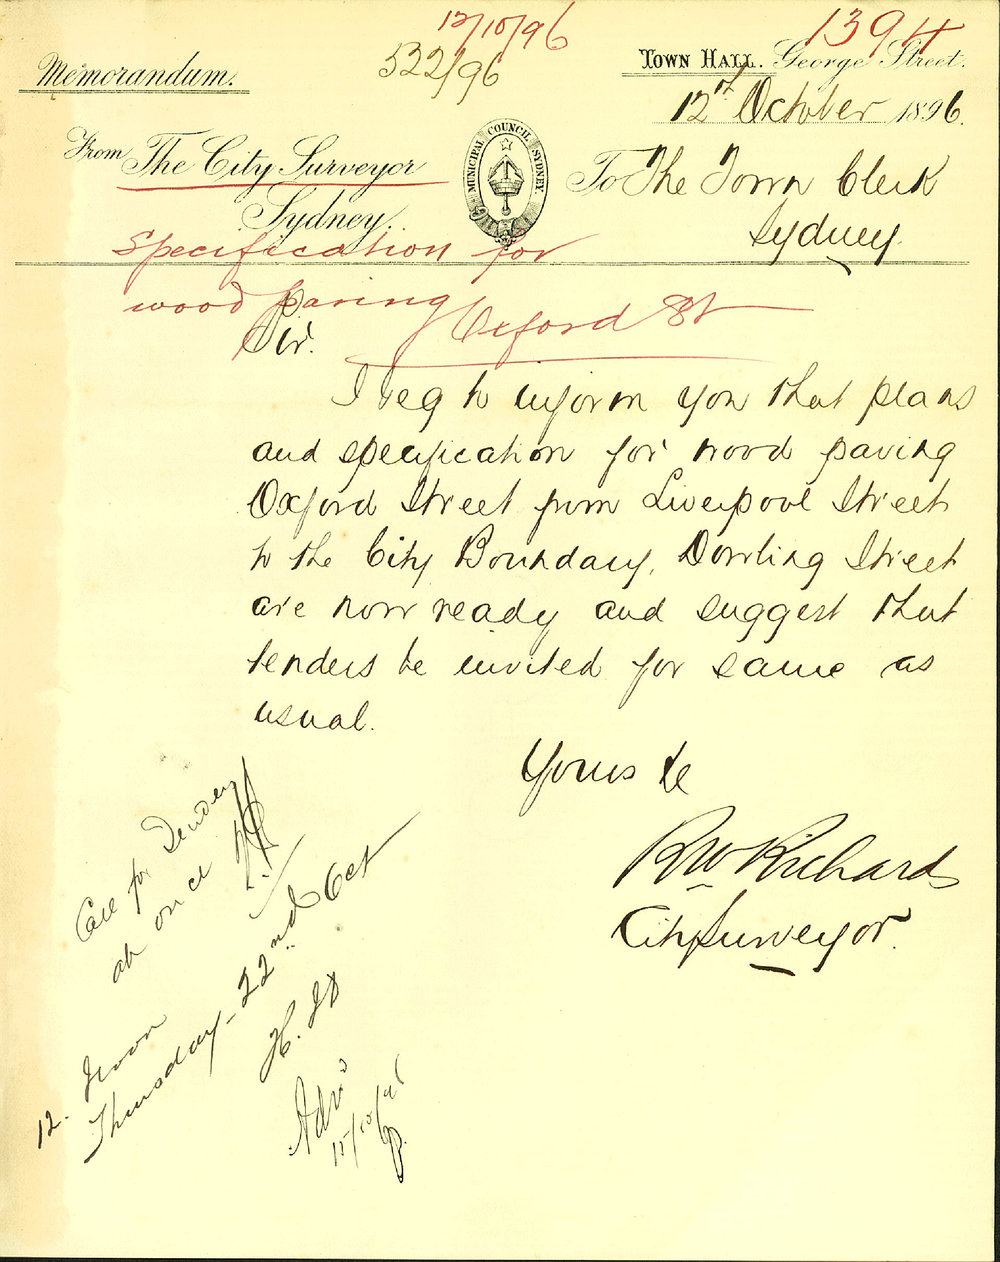 12/10/96
1394
522/96
Memorandum.
Town Hall. George Street.
12th October 1896.
From The City Surveyor
Sydney.
MUNICIPAL COUNCIL SYDNEY.
To The Town Clerk
Sydney.
Specification for
wood paving Oxford St
Sir.
I beg to inform you that plans
and specification for wood paving
Oxford Street from Liverpool Street
to the City Boundary, Dowling Street
are now ready and suggest that
tenders be invited for same as
usual.
Yours &c
RW Richards
City Surveyor.
Call for Tenders
at once
12. Noon
Thursday - 22nd Oct
Adv'd
15/10/96